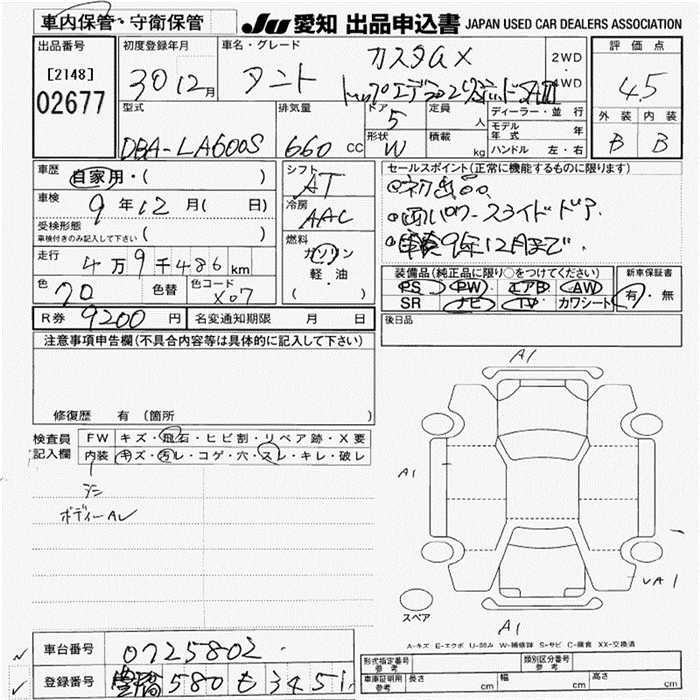 車内保管・守衛保管
JU 愛知 出品申込書 JAPAN USED CAR DEALERS ASSOCIATION
出品番号
[2148]
02677
初度登録年月
30 12月
車名・グレード
タント
カスタムX
トップエディションVS SAIII
2WD
・
4WD
評価点
4.5
外装 内装
B B
型式
DBA-LA600S
排気量
660 cc
ドア
5
定員
人
形状
W
積載
kg
ディーラー・並行
モデル年式 年
ハンドル 左・右
車歴
自家用・( )
車検
9年12月( 日)
受検形態
車検付きのみ記入して下さい ( )
走行
4万9千486km
色
クロ
色替
色コード
X07
シフト
AT
冷房
AAC
燃料
ガソリン
軽・油
( )
セールスポイント(正常に機能するものに限ります)
●両側パワースライドドア
●車検9年12月まで
装備品(純正品に限り○をつけてください)
PS PW エアB AW
SR ナビ TV カワシート
新車保証書
有・無
R券 9200円 名変通知期限 月 日
後日品
注意事項申告欄(不具合内容等は具体的に記入して下さい)
修復歴 有(箇所 )
検査員
記入欄
FW キズ・飛石・ヒビ割・リペア跡・X要
内装 キズ・汚レ・コゲ・穴・スレ・キレ・破レ
シミ
ボディーAU
A1
A1
A1
UA1
スペア
A-キズ E-エクボ U-凹み W-補修跡 S-サビ C-腐食 XX-交換済
車台番号
0725802
登録番号
豊橋 580 も 3451
形式指定番号
参考
類別区分番号
参考
車庫証明用
参考
長さ cm
幅 cm
高さ cm